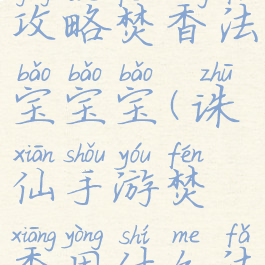 攻略焚香法
bǎo bǎo bǎo zhū
宝宝宝(诛
xiān shǒu yóu fén
仙手游焚
xiāng yòng shí me fǎ
香用什么法